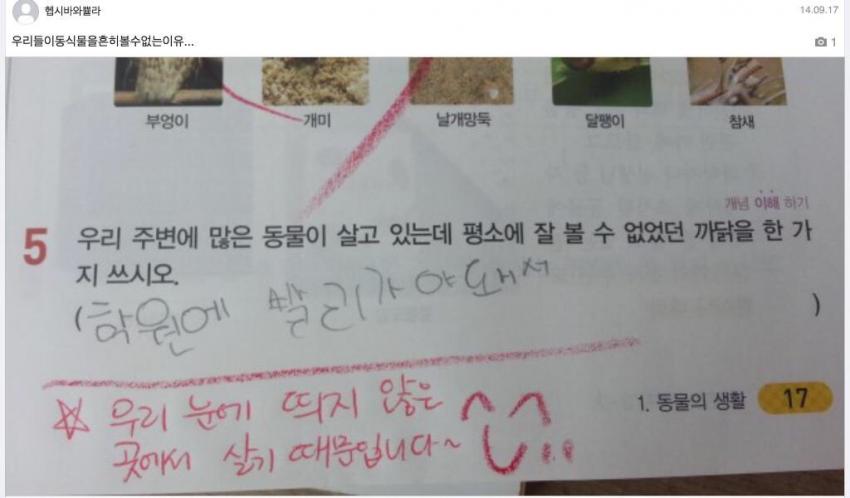 헵시바와쁄라
14.09.17
우리들이동식물을흔히볼수없는이유...
1
부엉이 개미 날개망둑 달팽이 참새
개념 이해 하기
5 우리 주변에 많은 동물이 살고 있는데 평소에 잘 볼 수 없었던 까닭을 한 가
지 쓰시오.
(학원에 빨리가야되서 )
☆ 우리 눈에 띄지 않은
곳에서 살기 때문입니다~
1. 동물의 생활 17